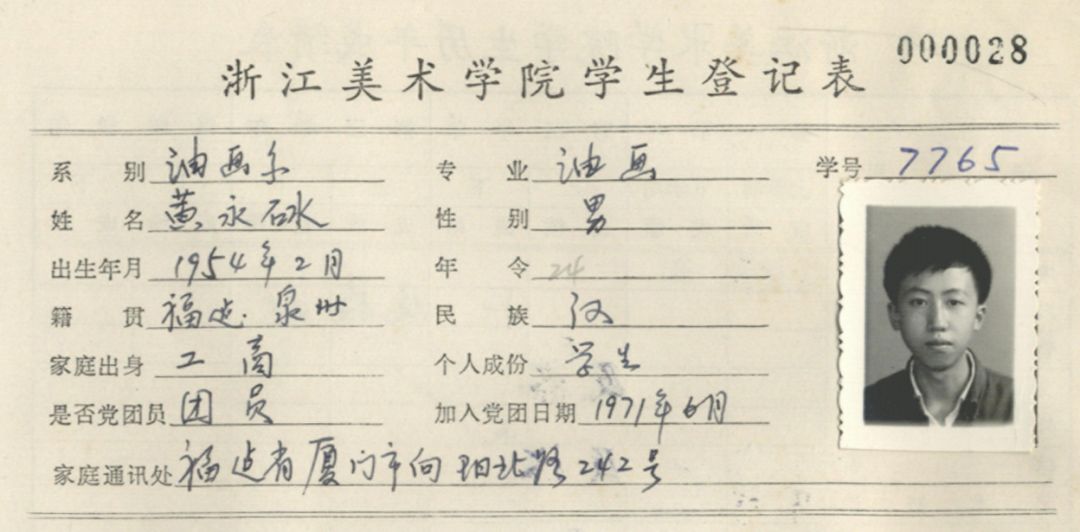 000028
浙江美术学院学生登记表
系别 油画系 专业 油画 学号 7765
姓名 黄永砯 性别 男
出生年月 1954年2月 年令 24
籍贯 福建 泉州 民族 汉
家庭出身 工商 个人成份 学生
是否党团员 团员 加入党团日期 1971年6月
家庭通讯处 福建省厦门市向阳北路242号